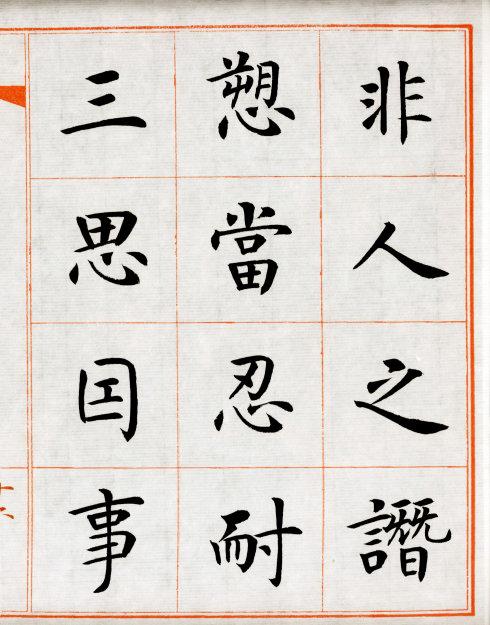 非人之譖
愬當忍耐
三思囙事